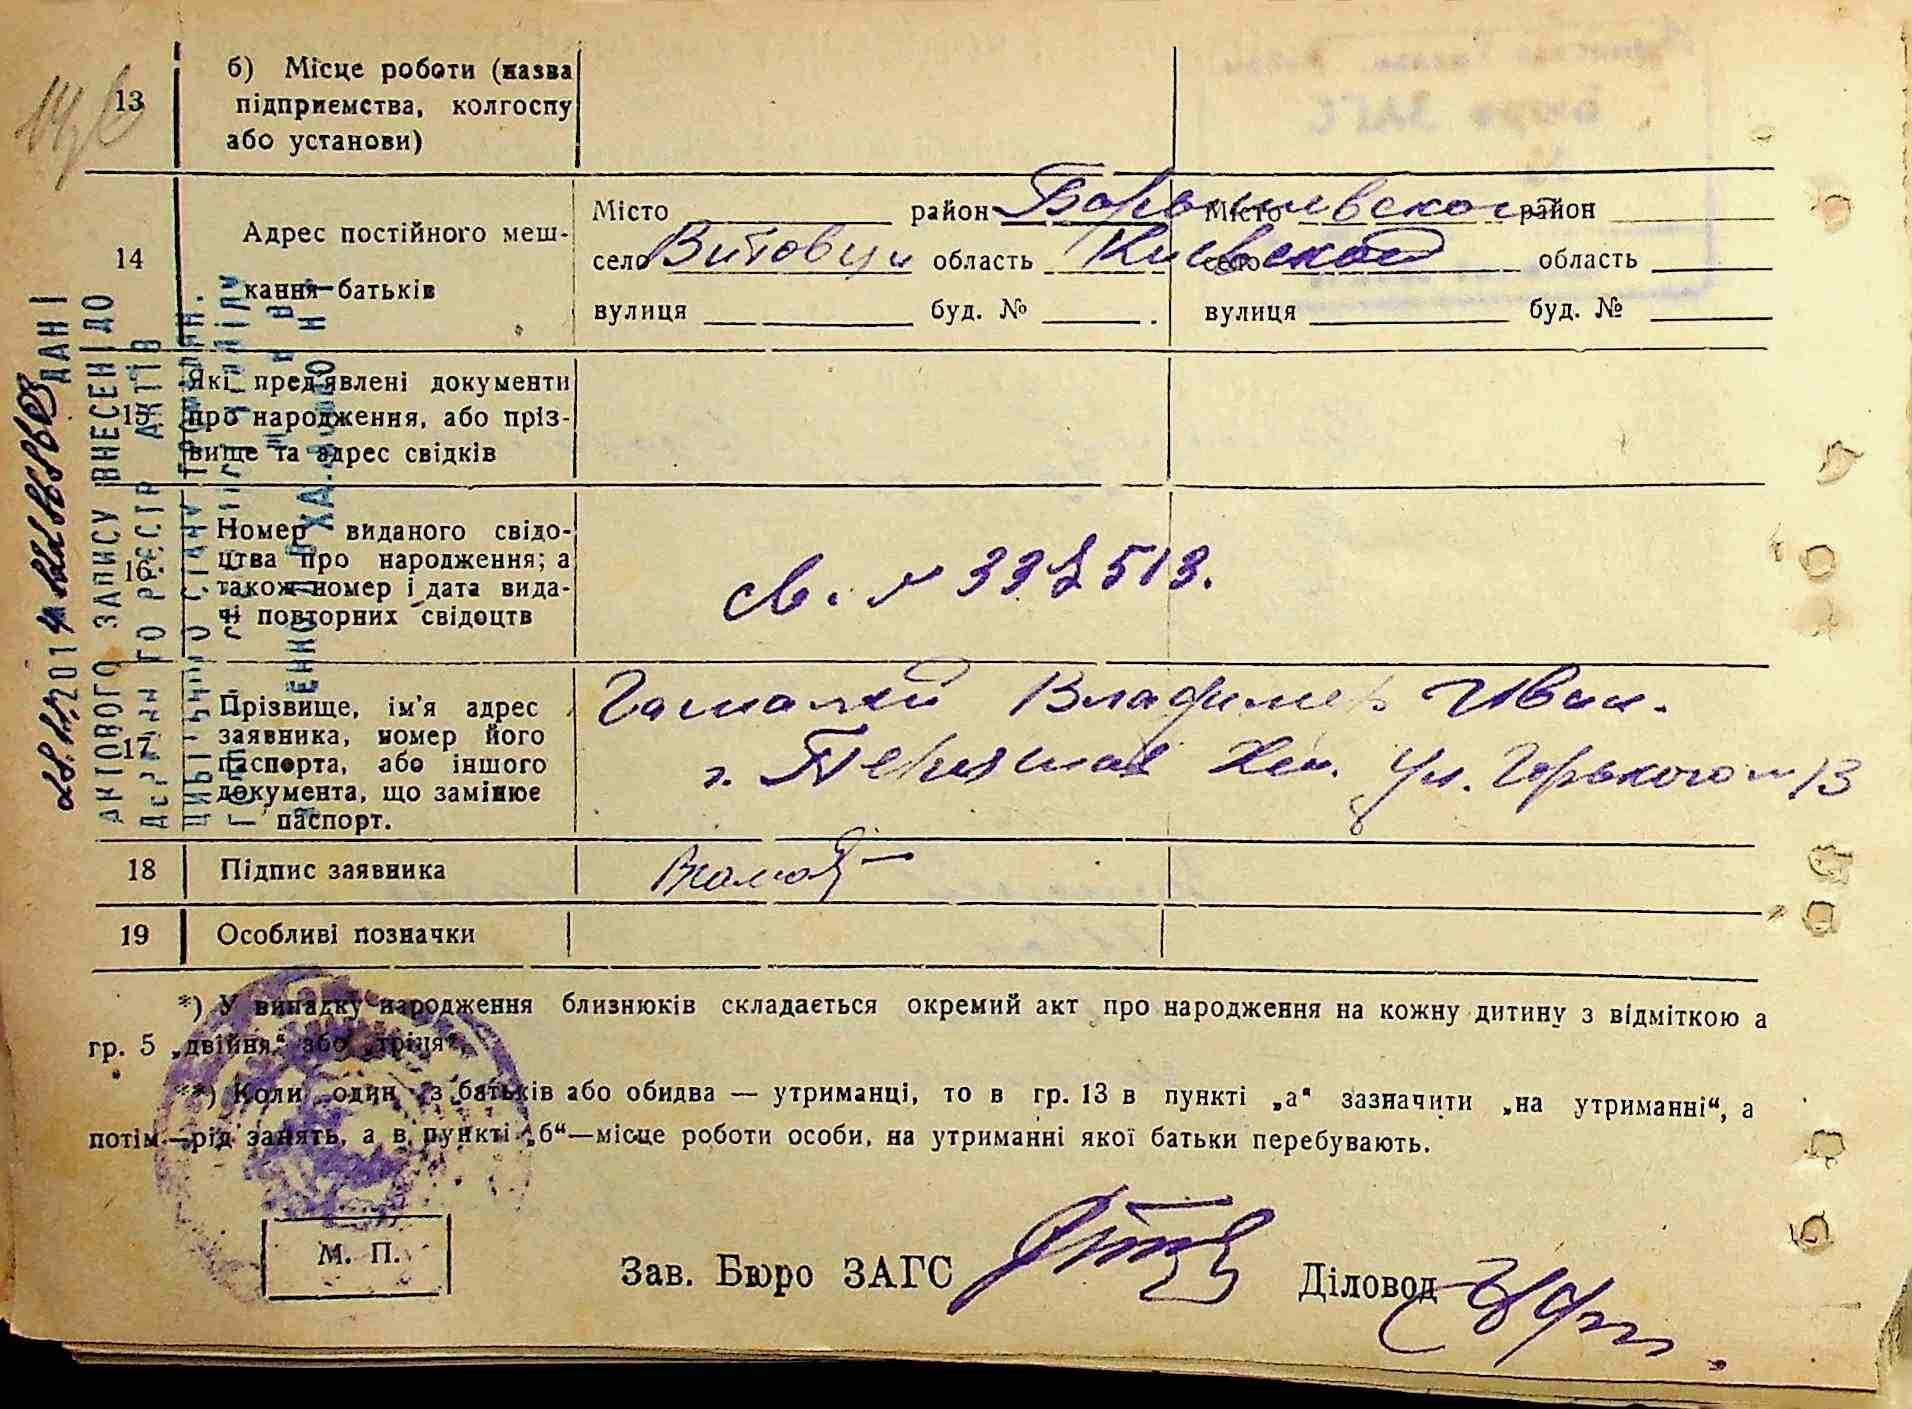 13
б) Місце роботи (назва
підприємства, колгоспу
або установи)
14
Адрес постійного меш-
кання батьків
Місто район
село Витовци область Киевской
вулиця буд. №
Місто район
село область
вулиця буд. №
15
Які пред'явлені документи
про народження, або пріз-
вище та адрес свідків
16
Номер виданого свідо-
цтва про народження; а
також номер і дата вида-
чі повторних свідоцтв
св. №
17
Прізвище, ім'я адрес
заявника, номер його
паспорта, або іншого
документа, що замінює
паспорт.
Владимер Иван.
г. Хм. ул. Горького № 13
18
Підпис заявника
19
Особливі позначки
*) У випадку народження близнюків складається окремий акт про народження на кожну дитину з відміткою а
гр. 5 „двійня“ або „трійня“.
**) Коли один з батьків або обидва — утриманці, то в гр. 13 в пункті „а“ зазначити „на утриманні“, а
потім—рід занять, а в пункті „б“—місце роботи особи, на утриманні якої батьки перебувають.
М. П.
Зав. Бюро ЗАГС
Діловод
28.11.2014
ДАНІ
АКТОВОГО ЗАПИСУ ВНЕСЕНІ ДО
РЕЄСТР АКТІВ